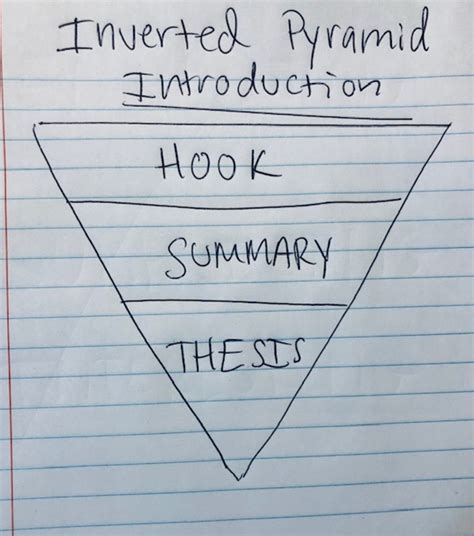 Inverted Pyramid
Introduction
HOOK
SUMMARY
THESIS